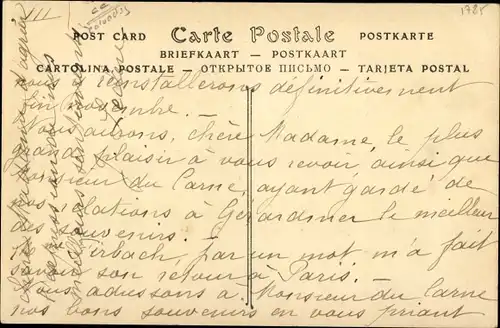 III
1785
POST CARD Carte Postale POSTKARTE
BRIEFKAART — POSTKAART
CARTOLINA POSTALE — ОТКРЫТОЕ ПИСЬМО — TARJETA POSTAL
nous réinstallerons définitivement
fin novembre. —
Nous aurons, chère Madame, le plus
grand plaisir à vous revoir, ainsi que
Monsieur du Carne, ayant gardé de
nos relations à Gérardmer le meilleur
des souvenirs. —
par un mot m'a fait
savoir son retour à Paris. —
Nous adressons à Monsieur du Carne
nos bons souvenirs en vous priant
chère Madame, d'agréer